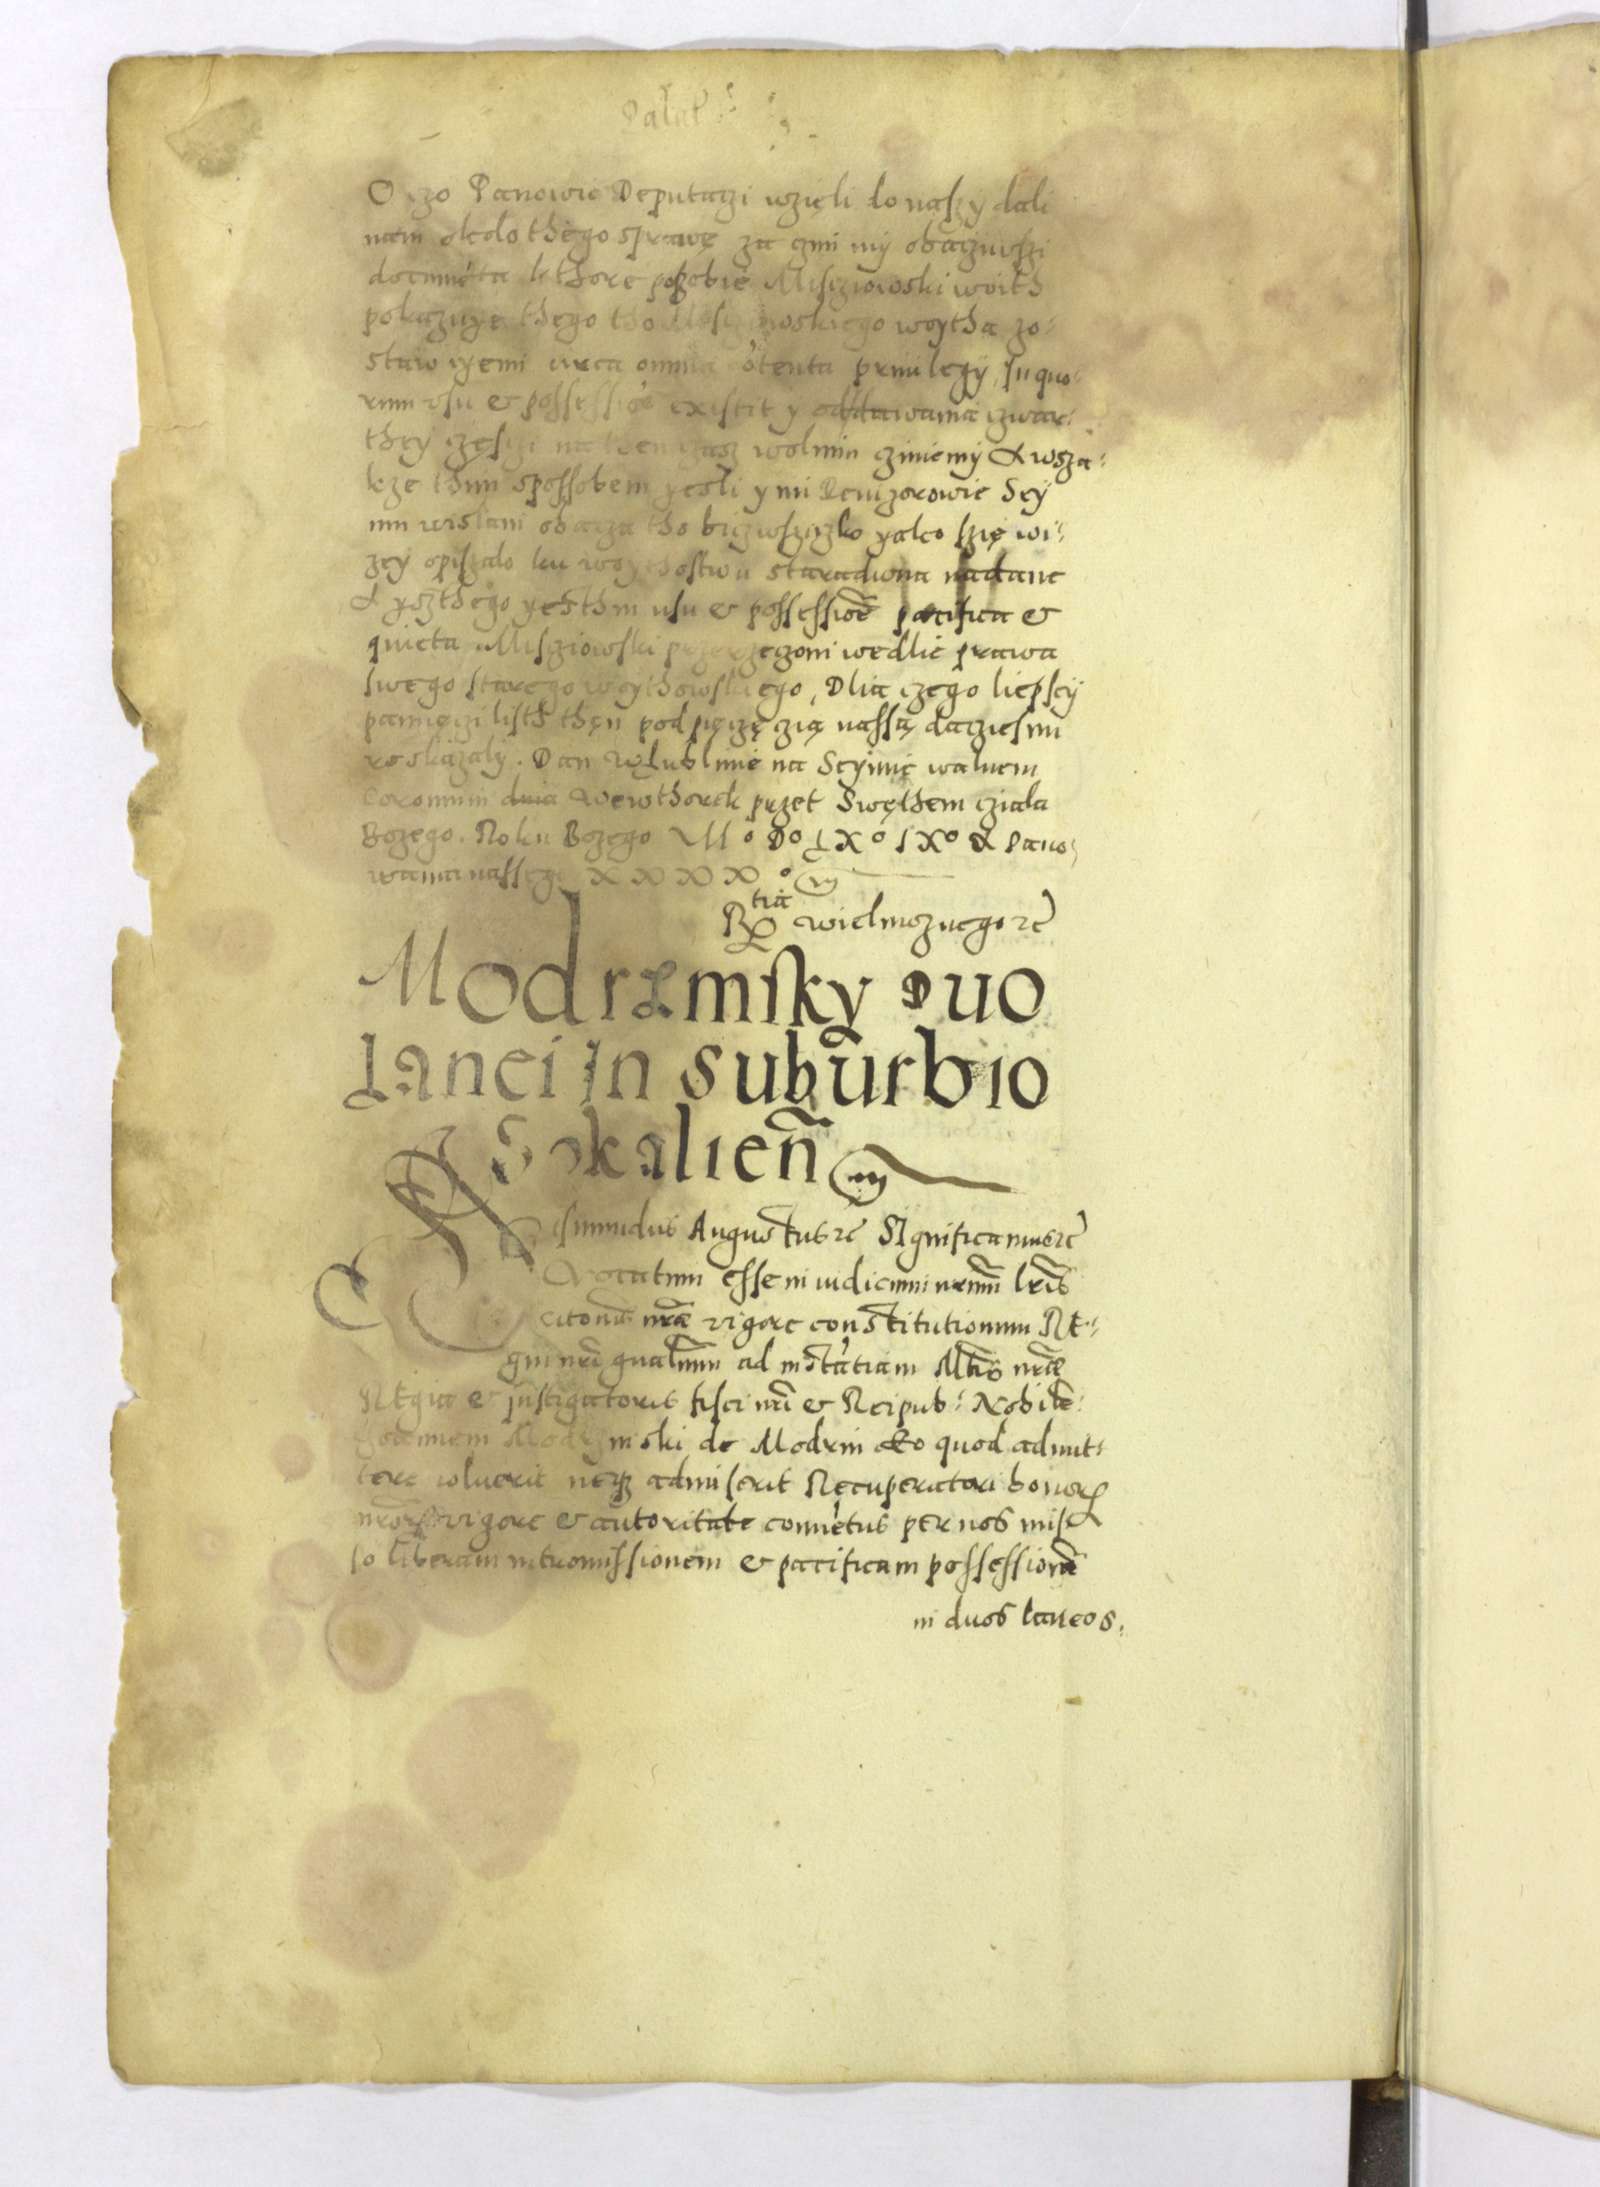 Palat
O czo Panowie Deputaczi wzięli do nas y dali
nam okolo thego sprawę za czim my obacziwszi
documēta kthore po sobie Misziowski woith
pokazuye thego tho Misziowskiego woytha zo-
stawuyemi circa omnia cōtenta priuilegij, In quo-
rum vsu et possessiōe existit y oddawania czwar-
they częsci na then czasz wolnim cziniemy A wsza-
kze thim spossobem yesli y mi Rewizorowie Sey
mu wislani obacza tho biczwszyczko yako szię wi-
zey opiszalo ku woythostwu staradwna nadane
A yszthego yesthin usu et possessiōe pacifica et
quieta Misziowski przerzegoni wedlie prawa
swego starego woythowskiego, Dlia czego liepsey
pamięczi listh then pod pięczęczią nassą dacziesmi
roskazaly. Dan w Lublinie na Seymie walnem
Coronnim dnia wewthorek przet Swęthem cziala
Bozego. Roku Bozego M° D° LX° IX° A Pano-
wania nassego XXXX°
Rtia wielmoznego rc
Modrzmsky Duo
Lanei In suburbio
Sokalien̄
Sigismundus Augustus rc Significamus rc
Vocatum esse in iudicium nrum lris
citoriis nris vigore constitutionum Re-
gni nri gnalium ad instātiam Mtis nrae
Regia et Instigatoris fisci nri et Reipub: Nobilē
Joannem Modrzinski de Modrin eo quod admit-
tere noluerit neque admiserit Recuperatori bonorum
nrorum vigore et autoritate comietus per nos mis-
so liberam intromissionem et pacificam possessionē
in duos laneos.